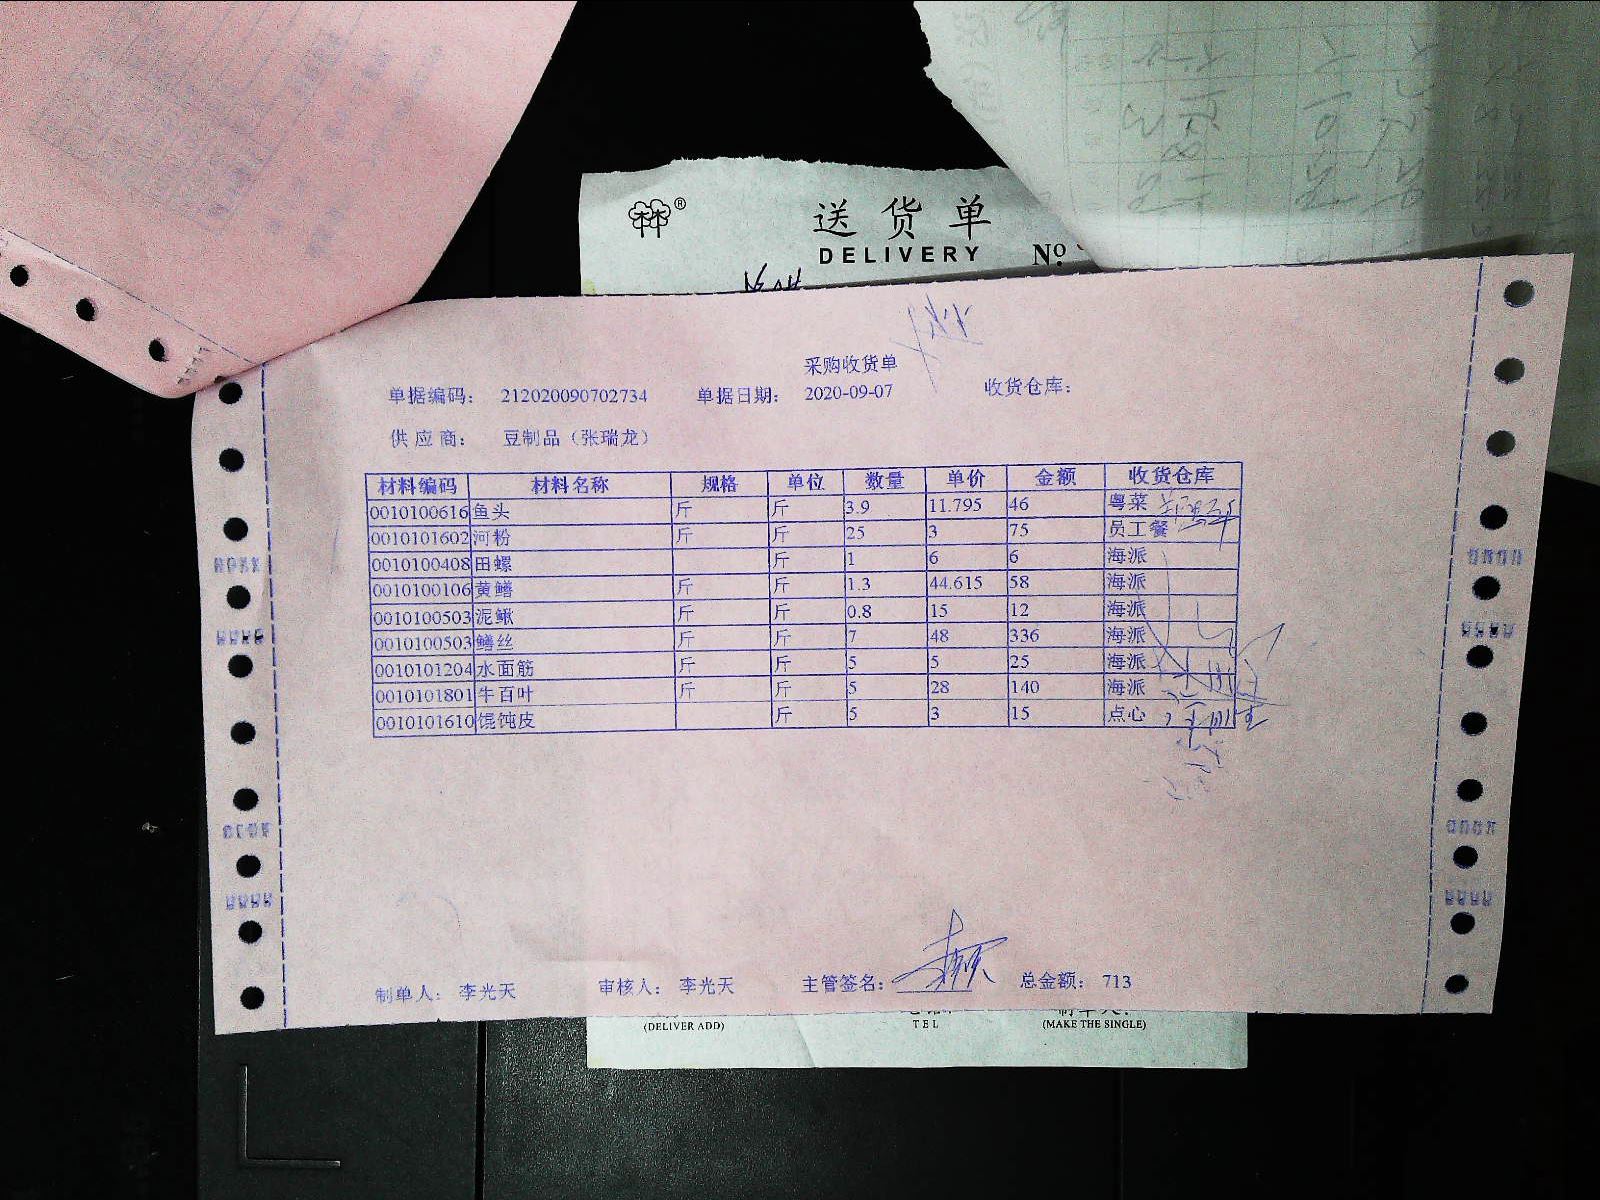 送货单
DELIVERY No.
采购收货单
单据编码： 212020090702734 单据日期： 2020-09-07 收货仓库：
供应商： 豆制品（张瑞龙）
材料编码 材料名称 规格 单位 数量 单价 金额 收货仓库
0010100616 鱼头 斤 斤 3.9 11.795 46 粤菜
0010101602 河粉 斤 斤 25 3 75 员工餐
0010100408 田螺 斤 1 6 6 海派
0010100106 黄鳝 斤 斤 1.3 44.615 58 海派
0010100503 泥鳅 斤 斤 0.8 15 12 海派
0010100503 鳝丝 斤 斤 7 48 336 海派
0010101204 水面筋 斤 斤 5 5 25 海派
0010101801 牛百叶 斤 斤 5 28 140 海派
0010101610 馄饨皮 斤 5 3 15 点心
制单人： 李光天 审核人： 李光天 主管签名： 总金额： 713
(DELIVER ADD) TEL (MAKE THE SINGLE)